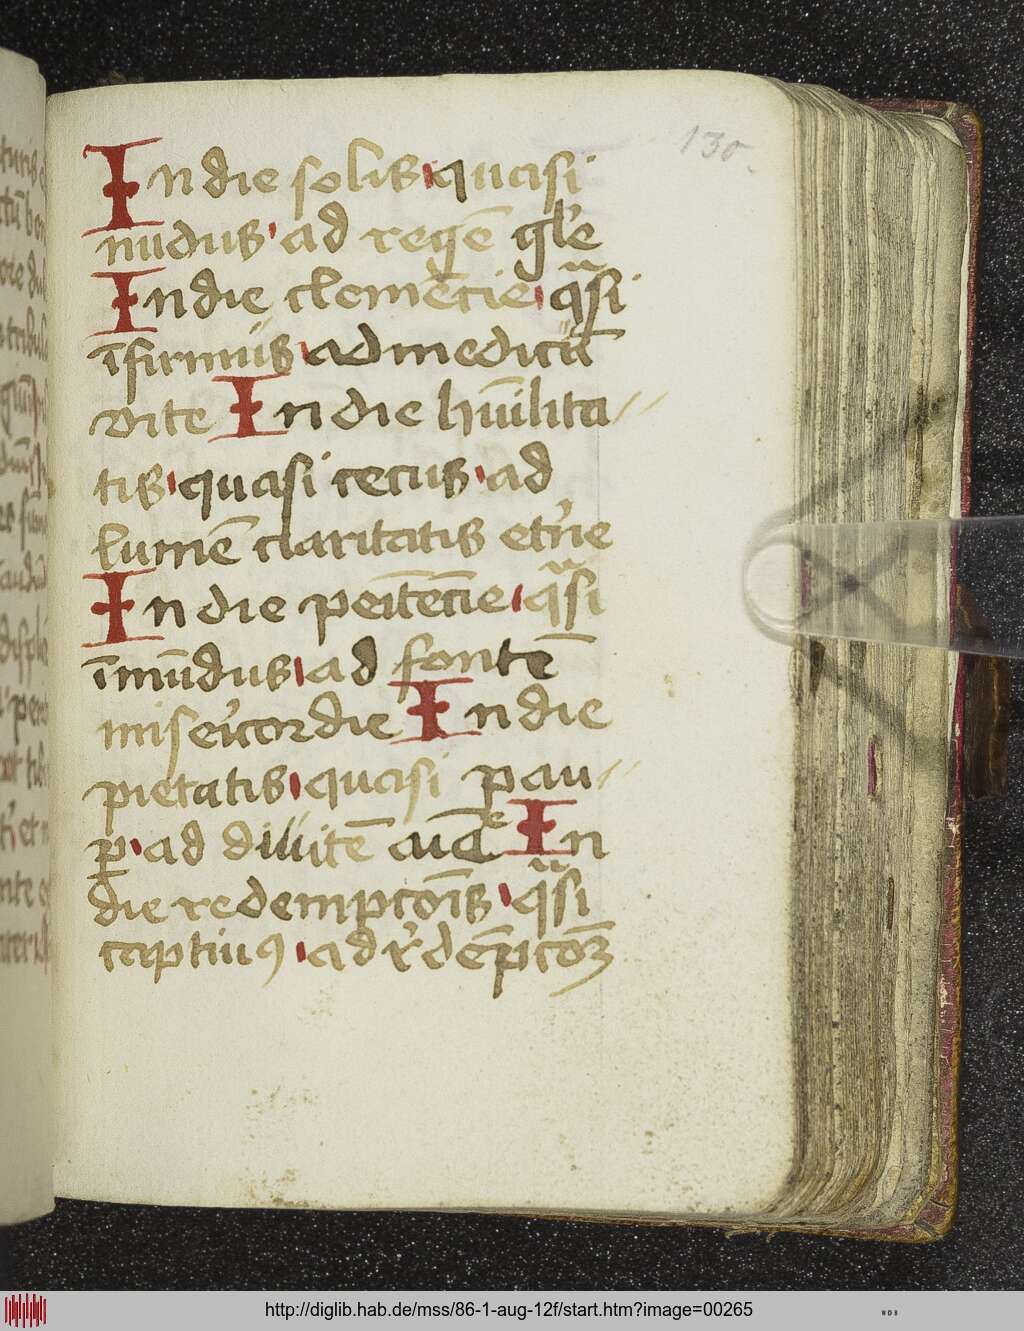 130.
In die solis quasi
nudus ad regē gl'e
In die clemēcie qͣsi
īfirmus ad medicū
vite In die hūilita
tis quasi cecus ad
lumē claritatis et'ne
In die peitēcie qͣsi
īmūdus ad fontē
mis'icordie In die
pietatis quasi pau
ꝑ ad diuitē In
die redempcōis qͣsi
captiuꝰ ad r'dēpcoꝫ
http://diglib.hab.de/mss/86-1-aug-12f/start.htm?image=00265